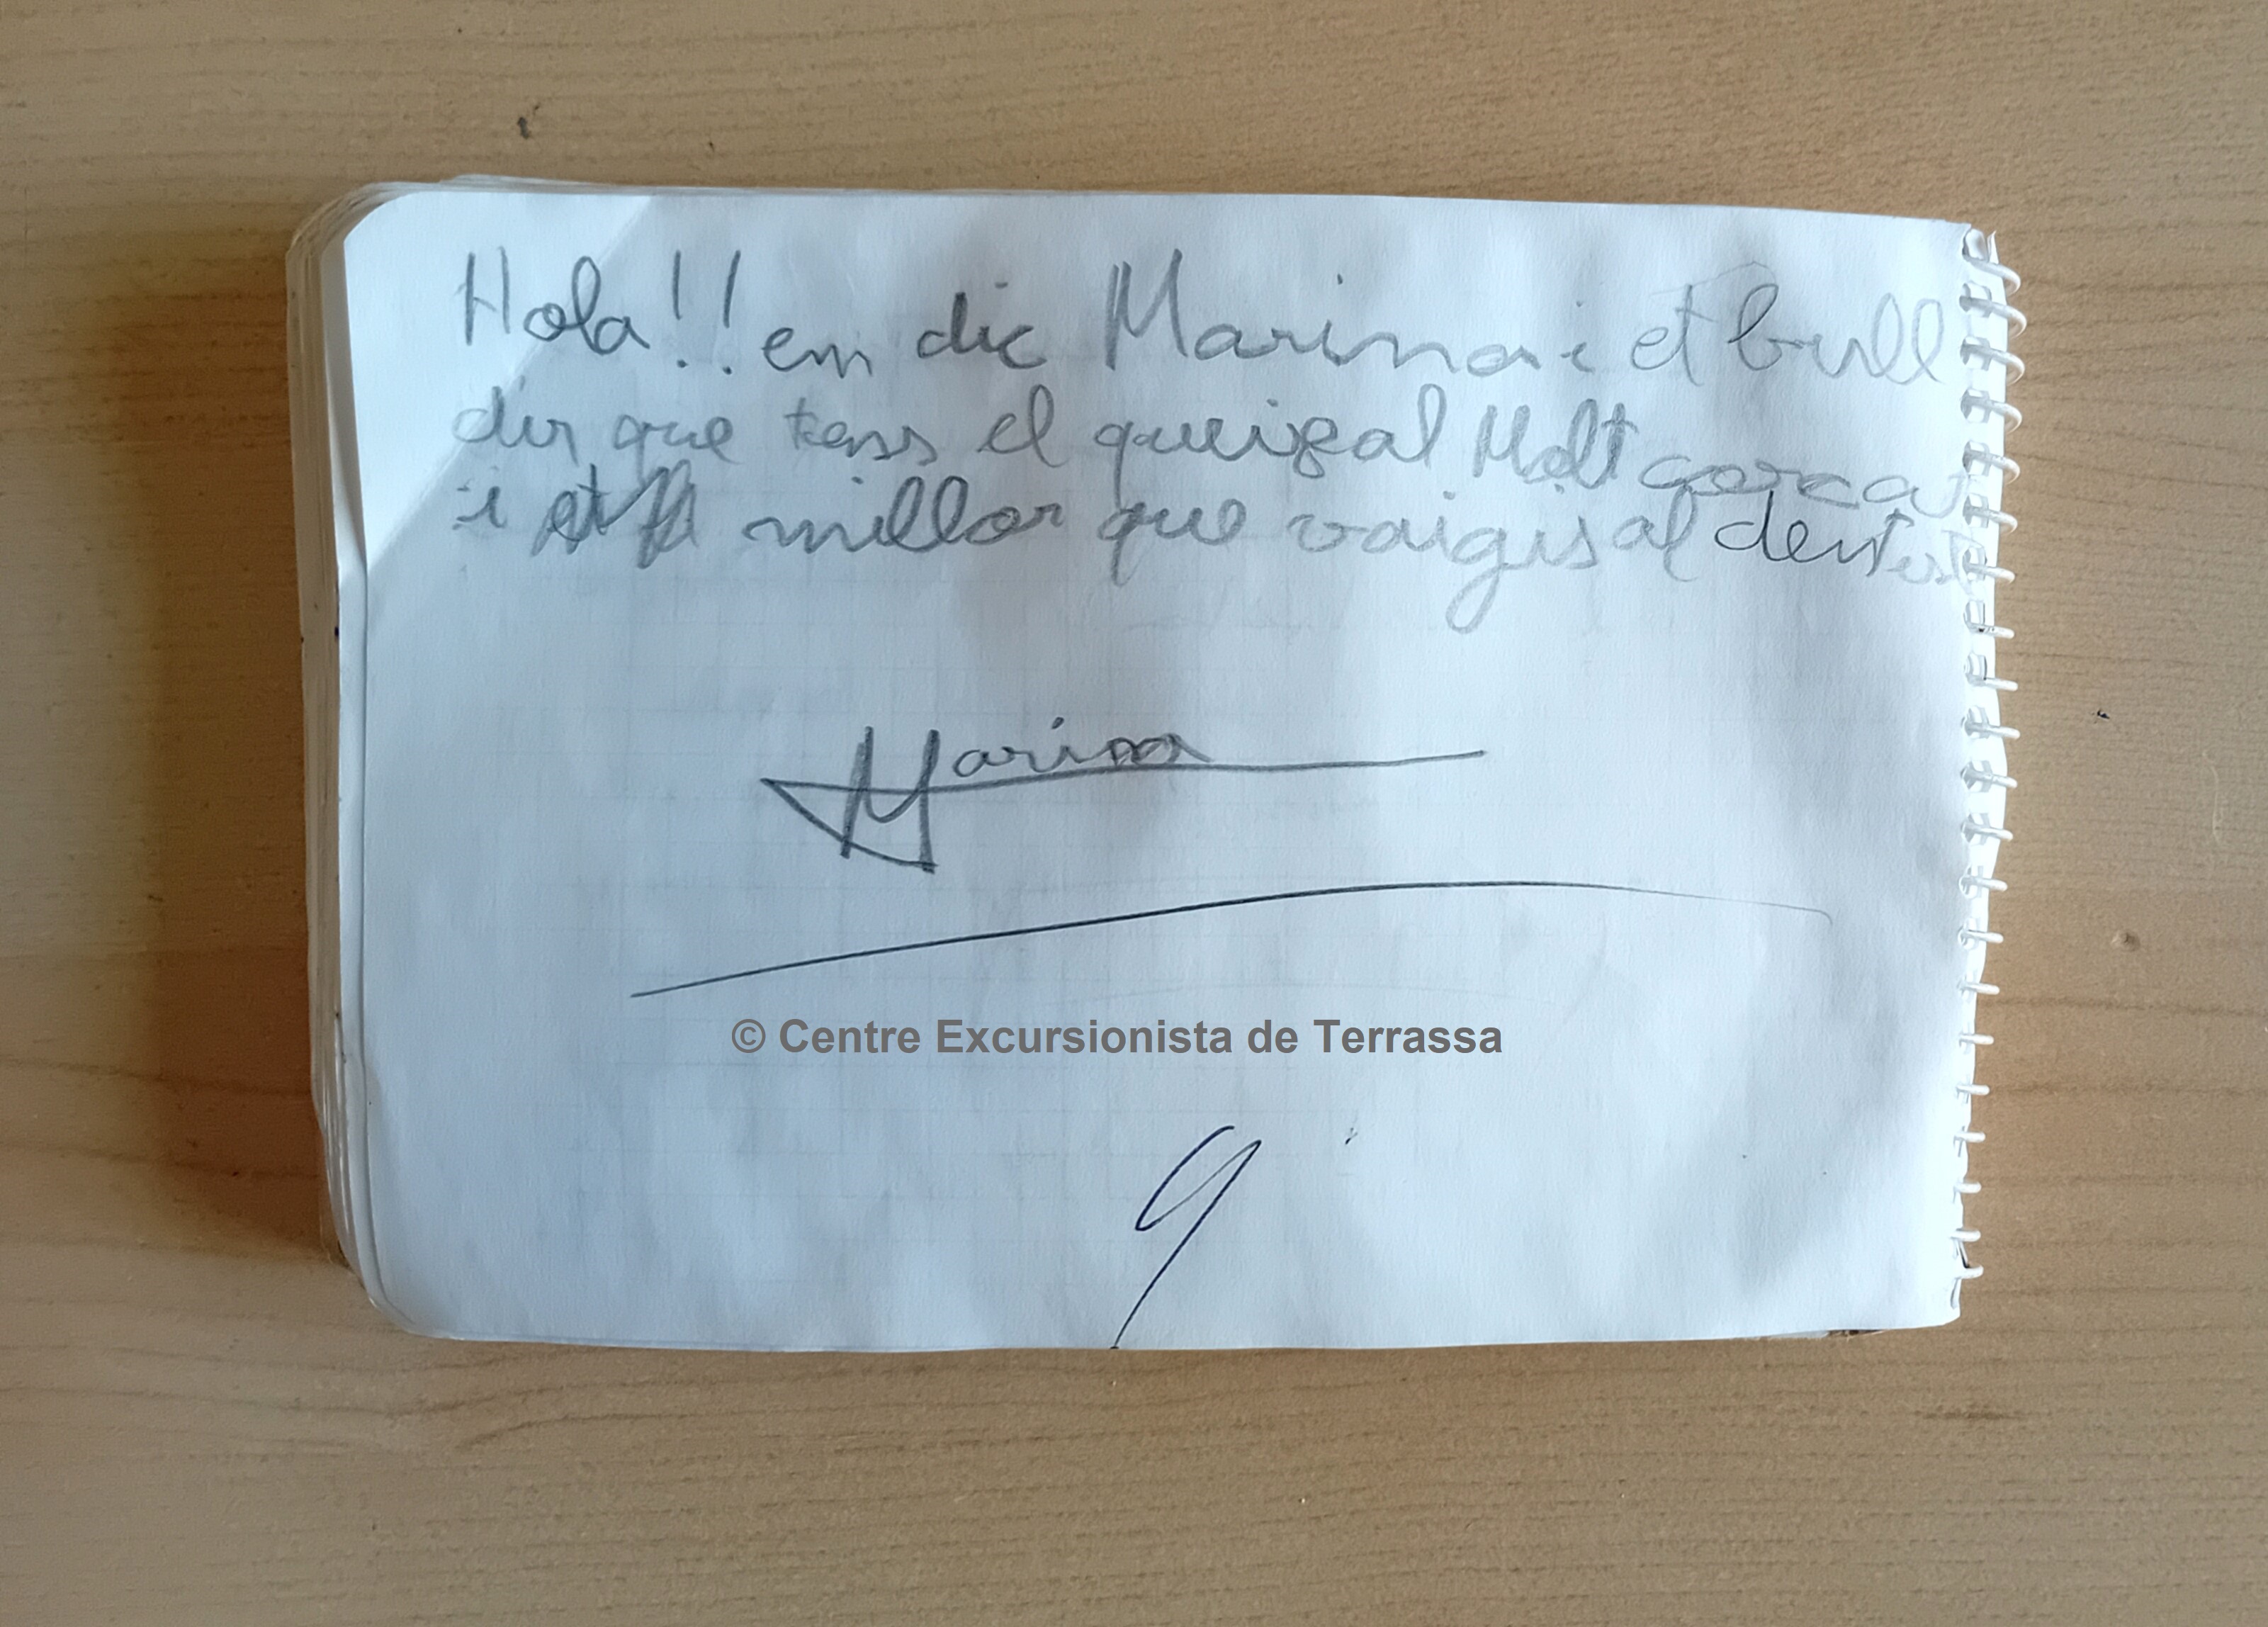 Hola!! em dic Marina i et bull
dir que tens el queixal Molt corcat
i millor que vaigis al dentist
Marina
© Centre Excursionista de Terrassa
9